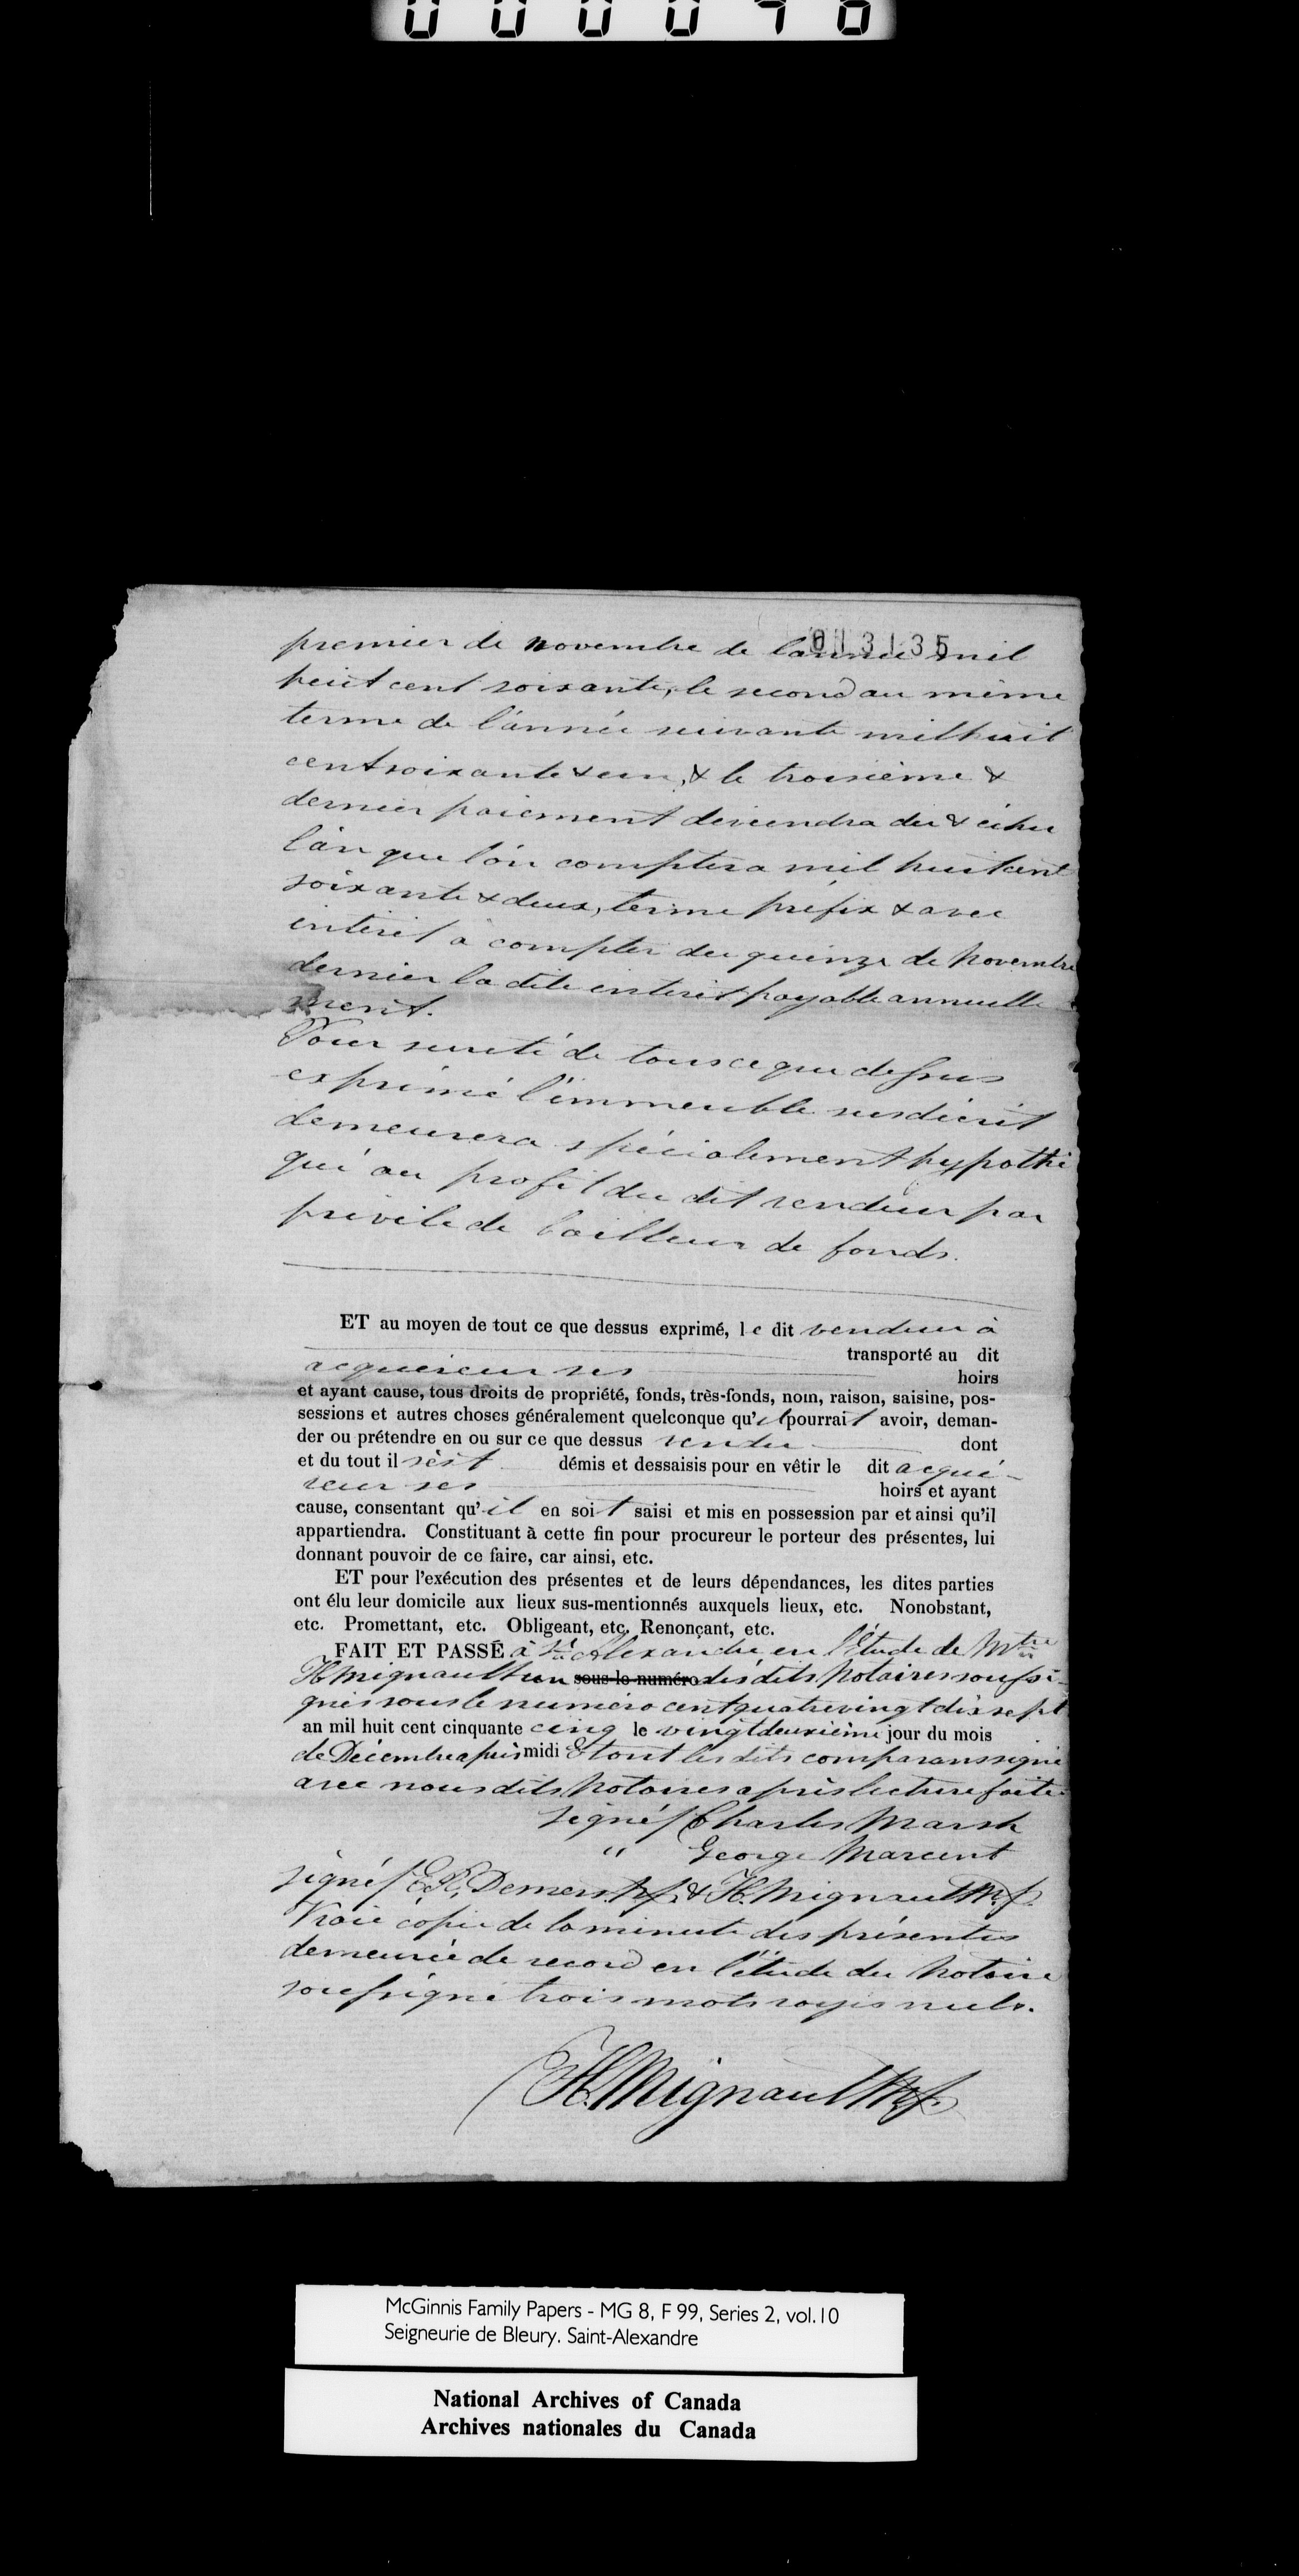 013135
premier de novembre de l'année mil
huit cent soixante, le second au même
terme de l'année suivante mil huit
cent soixante & un, & le troisième &
dernier paiement deviendra du & échu
l'an que l'on comptera mil huit cent
soixante & deux, terme préfix & avec
intérêt à compter du quinze de Novembre
dernier la dite intérêt payable annuelle
ment.
Pour sureté de tous ce que dessus
exprimé l'immeuble susdécrit
demeurera spécialement hypothé
qué au profit du dit vendeur par
privilè de bailleur de fonds.
ET au moyen de tout ce que dessus exprimé, le dit vendeur à
transporté au dit
acquéreur ses hoirs
et ayant cause, tous droits de propriété, fonds, très-fonds, nom, raison, saisine, pos-
sessions et autres choses généralement quelconque qu'il pourrait avoir, deman-
der ou prétendre en ou sur ce que dessus vendu dont
et du tout il s'est démis et dessaisis pour en vêtir le dit acqué-
reur ses hoirs et ayant
cause, consentant qu'il en soit saisi et mis en possession par et ainsi qu'il
appartiendra. Constituant à cette fin pour procureur le porteur des présentes, lui
donnant pouvoir de ce faire, car ainsi, etc.
ET pour l'exécution des présentes et de leurs dépendances, les dites parties
ont élu leur domicile aux lieux sus-mentionnés auxquels lieux, etc. Nonobstant,
etc. Promettant, etc. Obligeant, etc. Renonçant, etc.
FAIT ET PASSÉ à St. Alexandre en l'Étude de Mtre
H Mignault un sous le numéro des dits Notaires soussi-
gnés sous le numéro cent quatre vingt dix sept
an mil huit cent cinquante cinq le vingt deuxième jour du mois
de Décembre après midi & ont les dits comparans signé
avec nous dits Notaires après lecture faite
signé/ Charles Marsh
" George Marcent
signé/ E.R. Demers N.P. & H. Mignault N.P.
Vraie copie de la minute des présentes
demeurée de record en l'étude du Notaire
soussigné trois mots rayés nuls.
H. Mignault N.P.
McGinnis Family Papers - MG 8, F 99, Series 2, vol.10
Seigneurie de Bleury. Saint-Alexandre
National Archives of Canada
Archives nationales du Canada